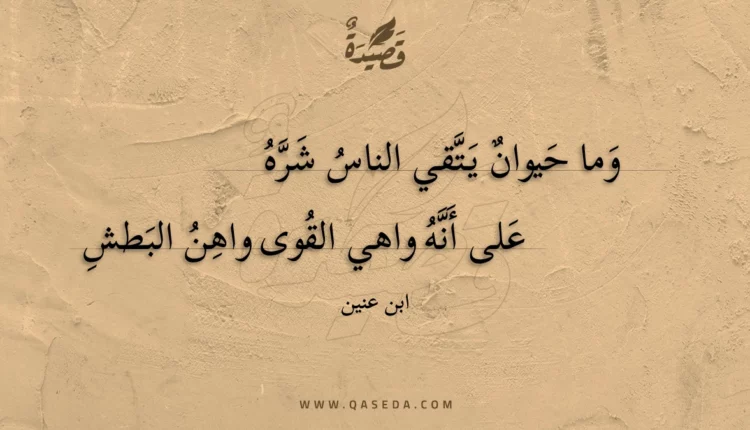 قَصِيدَةٌ
وَما حَيوانٌ يَتَّقي الناسُ شَرَّهُ
عَلى أَنَّهُ واهي القُوى واهِنُ البَطشِ
ابن عنين
WWW.QASEDA.COM